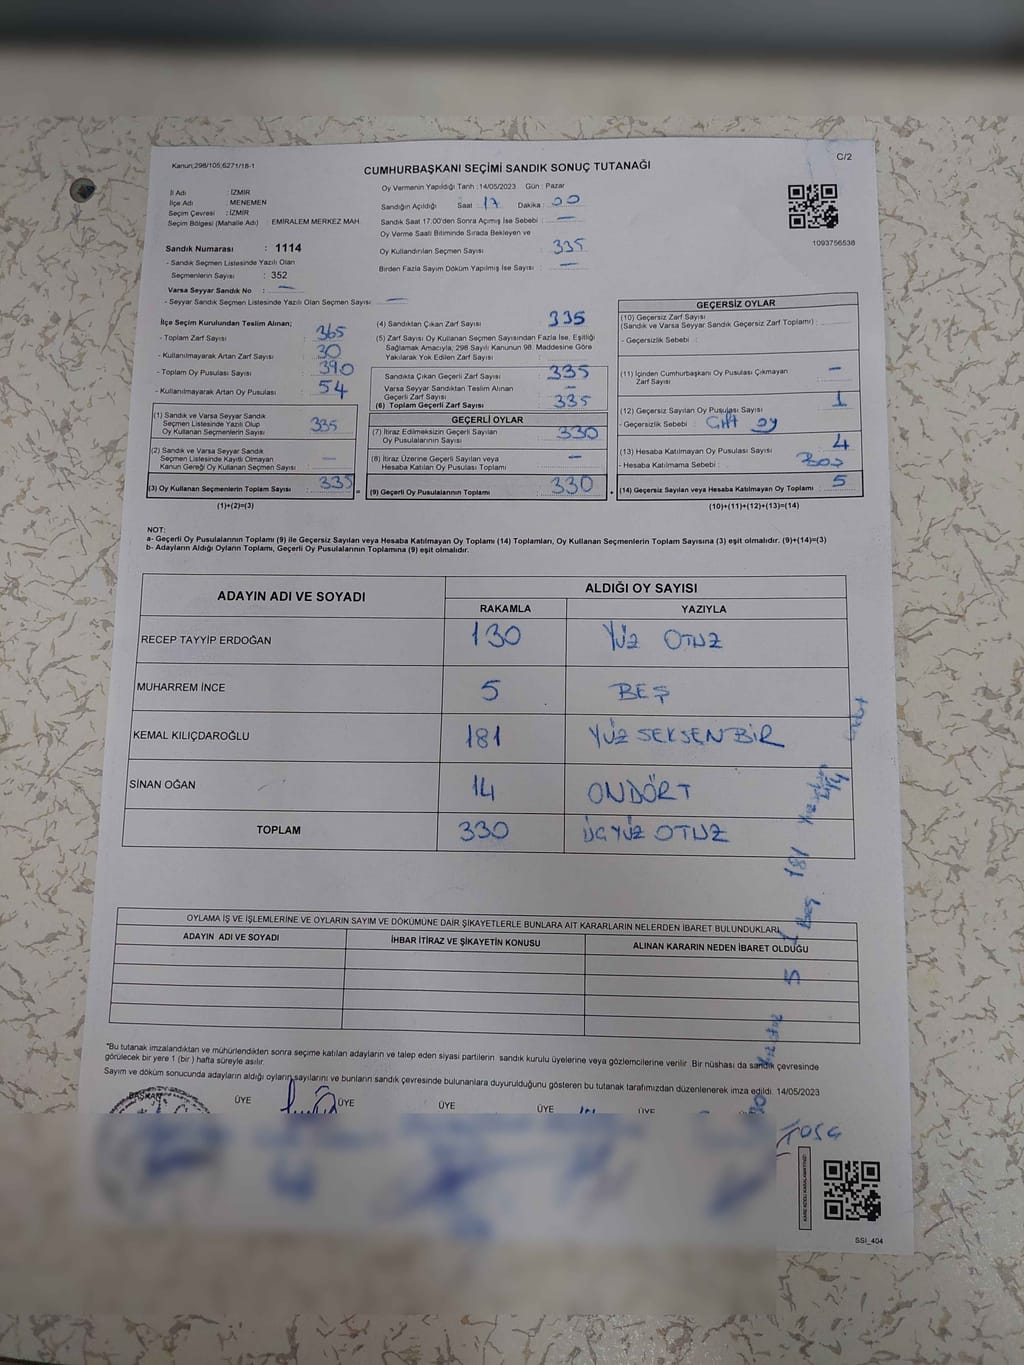 Kanun;298/105;6271/18-1
C/2
CUMHURBAŞKANI SEÇİMİ SANDIK SONUÇ TUTANAĞI
1093756538
İl Adı : İZMİR
İlçe Adı : MENEMEN
Seçim Çevresi : İZMİR
Seçim Bölgesi (Mahalle Adı) : EMİRALEM MERKEZ MAH.
Sandık Numarası : 1114
- Sandık Seçmen Listesinde Yazılı Olan
Seçmenlerin Sayısı : 352
Varsa Seyyar Sandık No : —
- Seyyar Sandık Seçmen Listesinde Yazılı Olan Seçmen Sayısı : —
Oy Vermenin Yapıldığı Tarih : 14/05/2023 Gün : Pazar
Sandığın Açıldığı Saat : 17 Dakika : 00
Sandık Saat 17:00'den Sonra Açımış İse Sebebi : —
Oy Verme Saati Bitiminde Sırada Bekleyen ve
Oy Kullandırılan Seçmen Sayısı : 335
Birden Fazla Sayım Döküm Yapılmış İse Sayısı : —
İlçe Seçim Kurulundan Teslim Alınan;
- Toplam Zarf Sayısı : 365
- Kullanılmayarak Artan Zarf Sayısı : 30
- Toplam Oy Pusulası Sayısı : 390
- Kullanılmayarak Artan Oy Pusulası : 54
(1) Sandık ve Varsa Seyyar Sandık
Seçmen Listesinde Yazılı Olup
Oy Kullanan Seçmenlerin Sayısı : 335
(2) Sandık ve Varsa Seyyar Sandık
Seçmen Listesinde Kayıtlı Olmayan
Kanun Gereği Oy Kullanan Seçmen Sayısı : —
(3) Oy Kullanan Seçmenlerin Toplam Sayısı : 335
(1)+(2)=(3)
(4) Sandıktan Çıkan Zarf Sayısı : 335
(5) Zarf Sayısı Oy Kullanan Seçmen Sayısından Fazla İse, Eşitliği
Sağlamak Amacıyla; 298 Sayılı Kanunun 98. Maddesine Göre
Yakılarak Yok Edilen Zarf Sayısı :
Sandıkta Çıkan Geçerli Zarf Sayısı : 335
Varsa Seyyar Sandıktan Teslim Alınan
Geçerli Zarf Sayısı : —
(6) Toplam Geçerli Zarf Sayısı : 335
GEÇERLİ OYLAR
(7) İtiraz Edilmeksizin Geçerli Sayılan
Oy Pusulalarının Sayısı : 330
(8) İtiraz Üzerine Geçerli Sayılan veya
Hesaba Katılan Oy Pusulası Toplamı : —
= (9) Geçerli Oy Pusulalarının Toplamı : 330 +
GEÇERSİZ OYLAR
(10) Geçersiz Zarf Sayısı
(Sandık ve Varsa Seyyar Sandık Geçersiz Zarf Toplamı) :
- Geçersizlik Sebebi :
(11) İçinden Cumhurbaşkanı Oy Pusulası Çıkmayan
Zarf Sayısı : —
(12) Geçersiz Sayılan Oy Pusulası Sayısı : 1
- Geçersizlik Sebebi : Çift oy
(13) Hesaba Katılmayan Oy Pusulası Sayısı : 4
- Hesaba Katılmama Sebebi : Boş
(14) Geçersiz Sayılan veya Hesaba Katılmayan Oy Toplamı : 5
(10)+(11)+(12)+(13)=(14)
NOT:
a- Geçerli Oy Pusulalarının Toplamı (9) ile Geçersiz Sayılan veya Hesaba Katılmayan Oy Toplamı (14) Toplamları, Oy Kullanan Seçmenlerin Toplam Sayısına (3) eşit olmalıdır. (9)+(14)=(3)
b- Adayların Aldığı Oyların Toplamı, Geçerli Oy Pusulalarının Toplamına (9) eşit olmalıdır.
ADAYIN ADI VE SOYADI ALDIĞI OY SAYISI
RAKAMLA YAZIYLA
RECEP TAYYİP ERDOĞAN 130 YÜZ OTUZ
MUHARREM İNCE 5 BEŞ
KEMAL KILIÇDAROĞLU 181 YÜZ SEKSEN BİR
SİNAN OĞAN 14 ONDÖRT
TOPLAM 330 ÜÇ YÜZ OTUZ
OYLAMA İŞ VE İŞLEMLERİNE VE OYLARIN SAYIM VE DÖKÜMÜNE DAİR ŞİKAYETLERLE BUNLARA AİT KARARLARIN NELERDEN İBARET BULUNDUKLARI
ADAYIN ADI VE SOYADI İHBAR İTİRAZ VE ŞİKAYETİN KONUSU ALINAN KARARIN NEDEN İBARET OLDUĞU
5 Beş 181
*Bu tutanak imzalandıktan ve mühürlendikten sonra seçime katılan adayların ve talep eden siyasi partilerin sandık kurulu üyelerine veya gözlemcilerine verilir. Bir nüshası da sandık çevresinde
görülecek bir yere 1 (bir ) hafta süreyle asılır.
Sayım ve döküm sonucunda adayların aldığı oyların sayılarını ve bunların sandık çevresinde bulunanlara duyurulduğunu gösteren bu tutanak tarafımızdan düzenlenerek imza edildi. 14/05/2023
BAŞKAN ÜYE ÜYE ÜYE ÜYE ÜYE
SSI_404